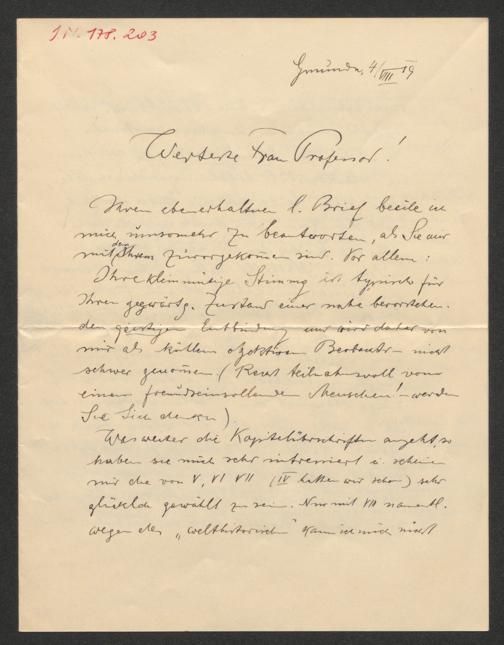 IN. 178.203
Gmunden, 4/VIII 19
Werteste Frau Professor!
Ihren ebenerhaltnen l. Brief beeile ich
mich umsomehr zu beantworten, als Sie mir
mit dem Ihren zuvorgekommen sind. Vor allem:
Ihre kleinmütige Stimmg ist typisch für
Ihren gegenwärtg. Zustand einer nahe bevorstehen-
den geistigen Entbindung und wird daher von
mir als kühlem objektiven Beobachter nicht
schwer genommen ( teilnahmsvoll vom
einem freundseinsollenden Menschen! – werden
Sie Sich denken).
Was weiter die Kapitelüberschriften angeht, so
haben sie mich sehr interessiert u. scheinen
mir die von V, VI VII (IV hatten wir schon) sehr
glücklich gewählt zu sein. Nur mit VII namentl.
wegen des „welthistorischen" kann ich mich nicht